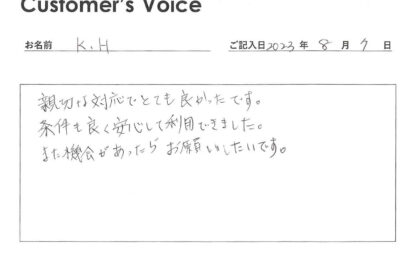 Customer's Voice
お名前 K.H ご記入日2023 年 8 月 7 日
親切な対応でとても良かったです。
条件も良く安心して利用できました。
また機会があったらお願いしたいです。